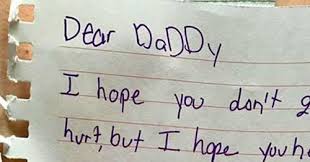 Dear DaDDy
I hope you don't
hurt, but I hope you